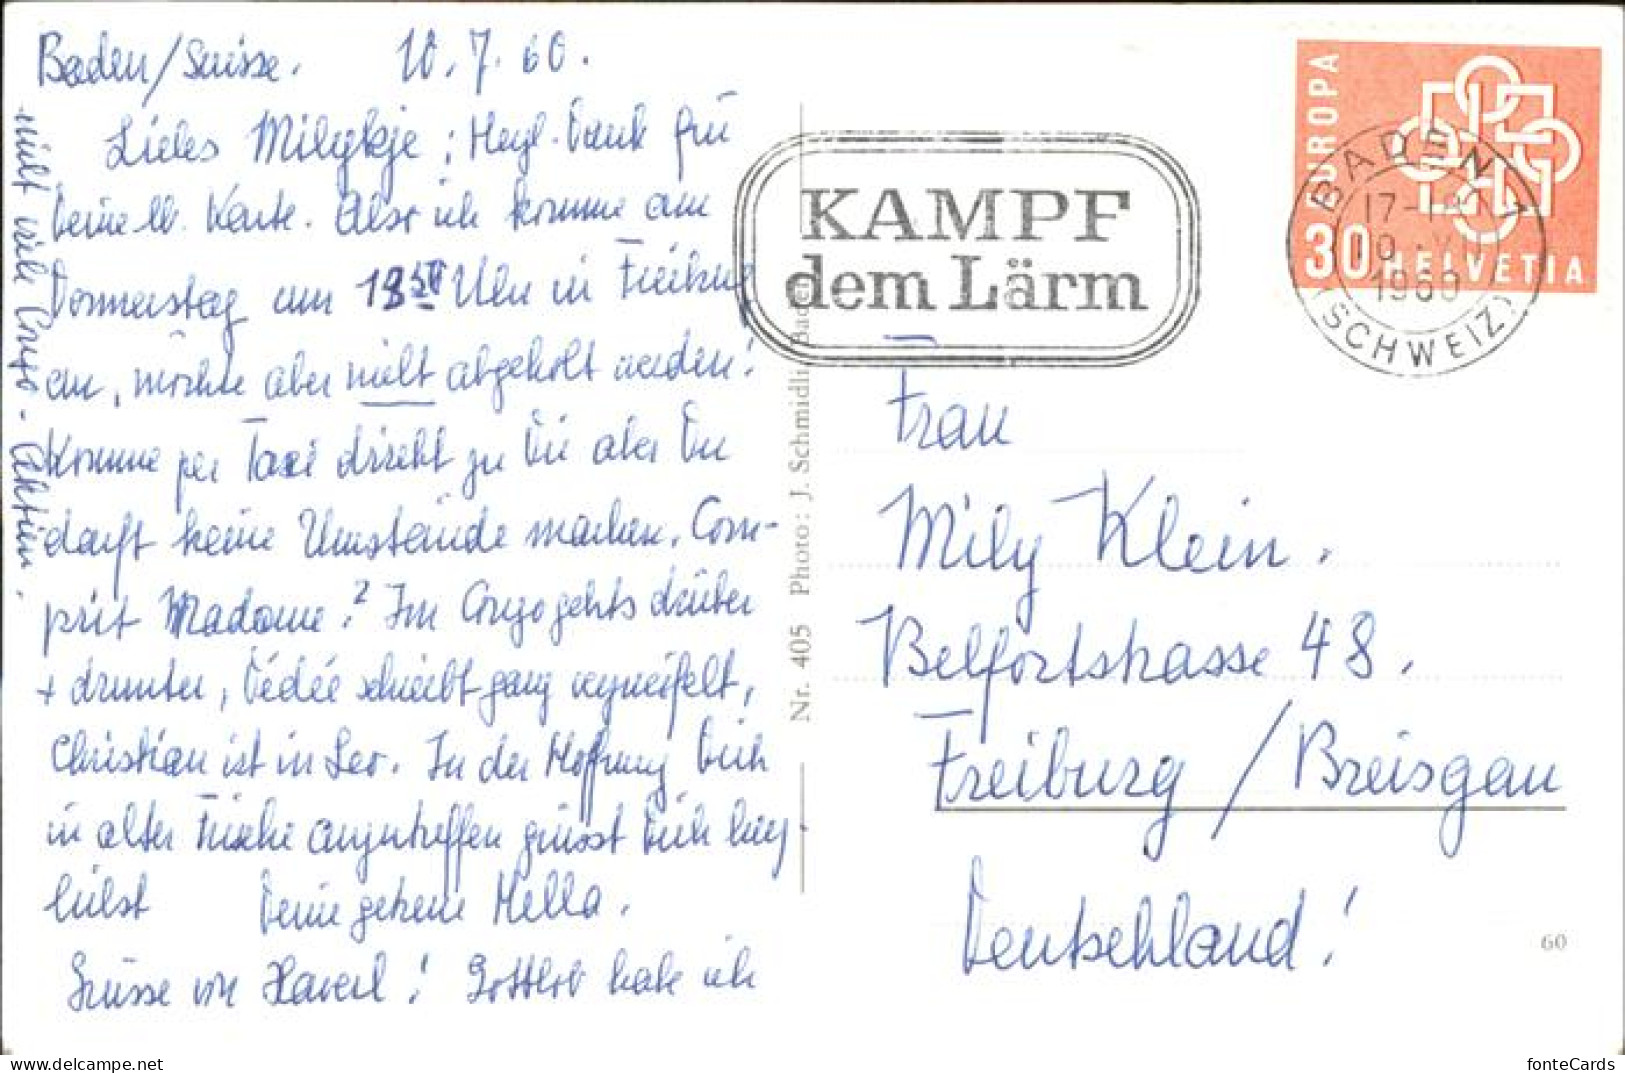 Baden/Suisse. 10.7.60.
Liebes Milykje; Hezl. Dank für
Deine lb. Karte. Also ich komme am
Donnerstag um 18 Uhr in Freiburg
an, möchte aber nicht abgeholt werden!
Komme per Taxi direkt zu Dir aber Du
darfst keine Umstände machen. Com-
prit Madame? Im Congo gehts drüber
+ drunter, Dédée schreibt ganz verzweifelt,
Christian ist in Leo. In der Hoffnung Dich
in alter Frische anzutreffen grüsst Dich herz
lichst Deine getreue Hella.
Grüsse von Haverl! Gottlob habe ich
nicht viele Congo-Aktien.
KAMPF
dem Lärm
EUROPA
30 HELVETIA
BADEN 1
17-18
10.VII
1960
(SCHWEIZ)
Nr. 405 Photo: J. Schmidli, Baden
Frau
Mily Klein.
Belfortstrasse 48.
Freiburg/Breisgau
Deutschland!
60
fonteCards